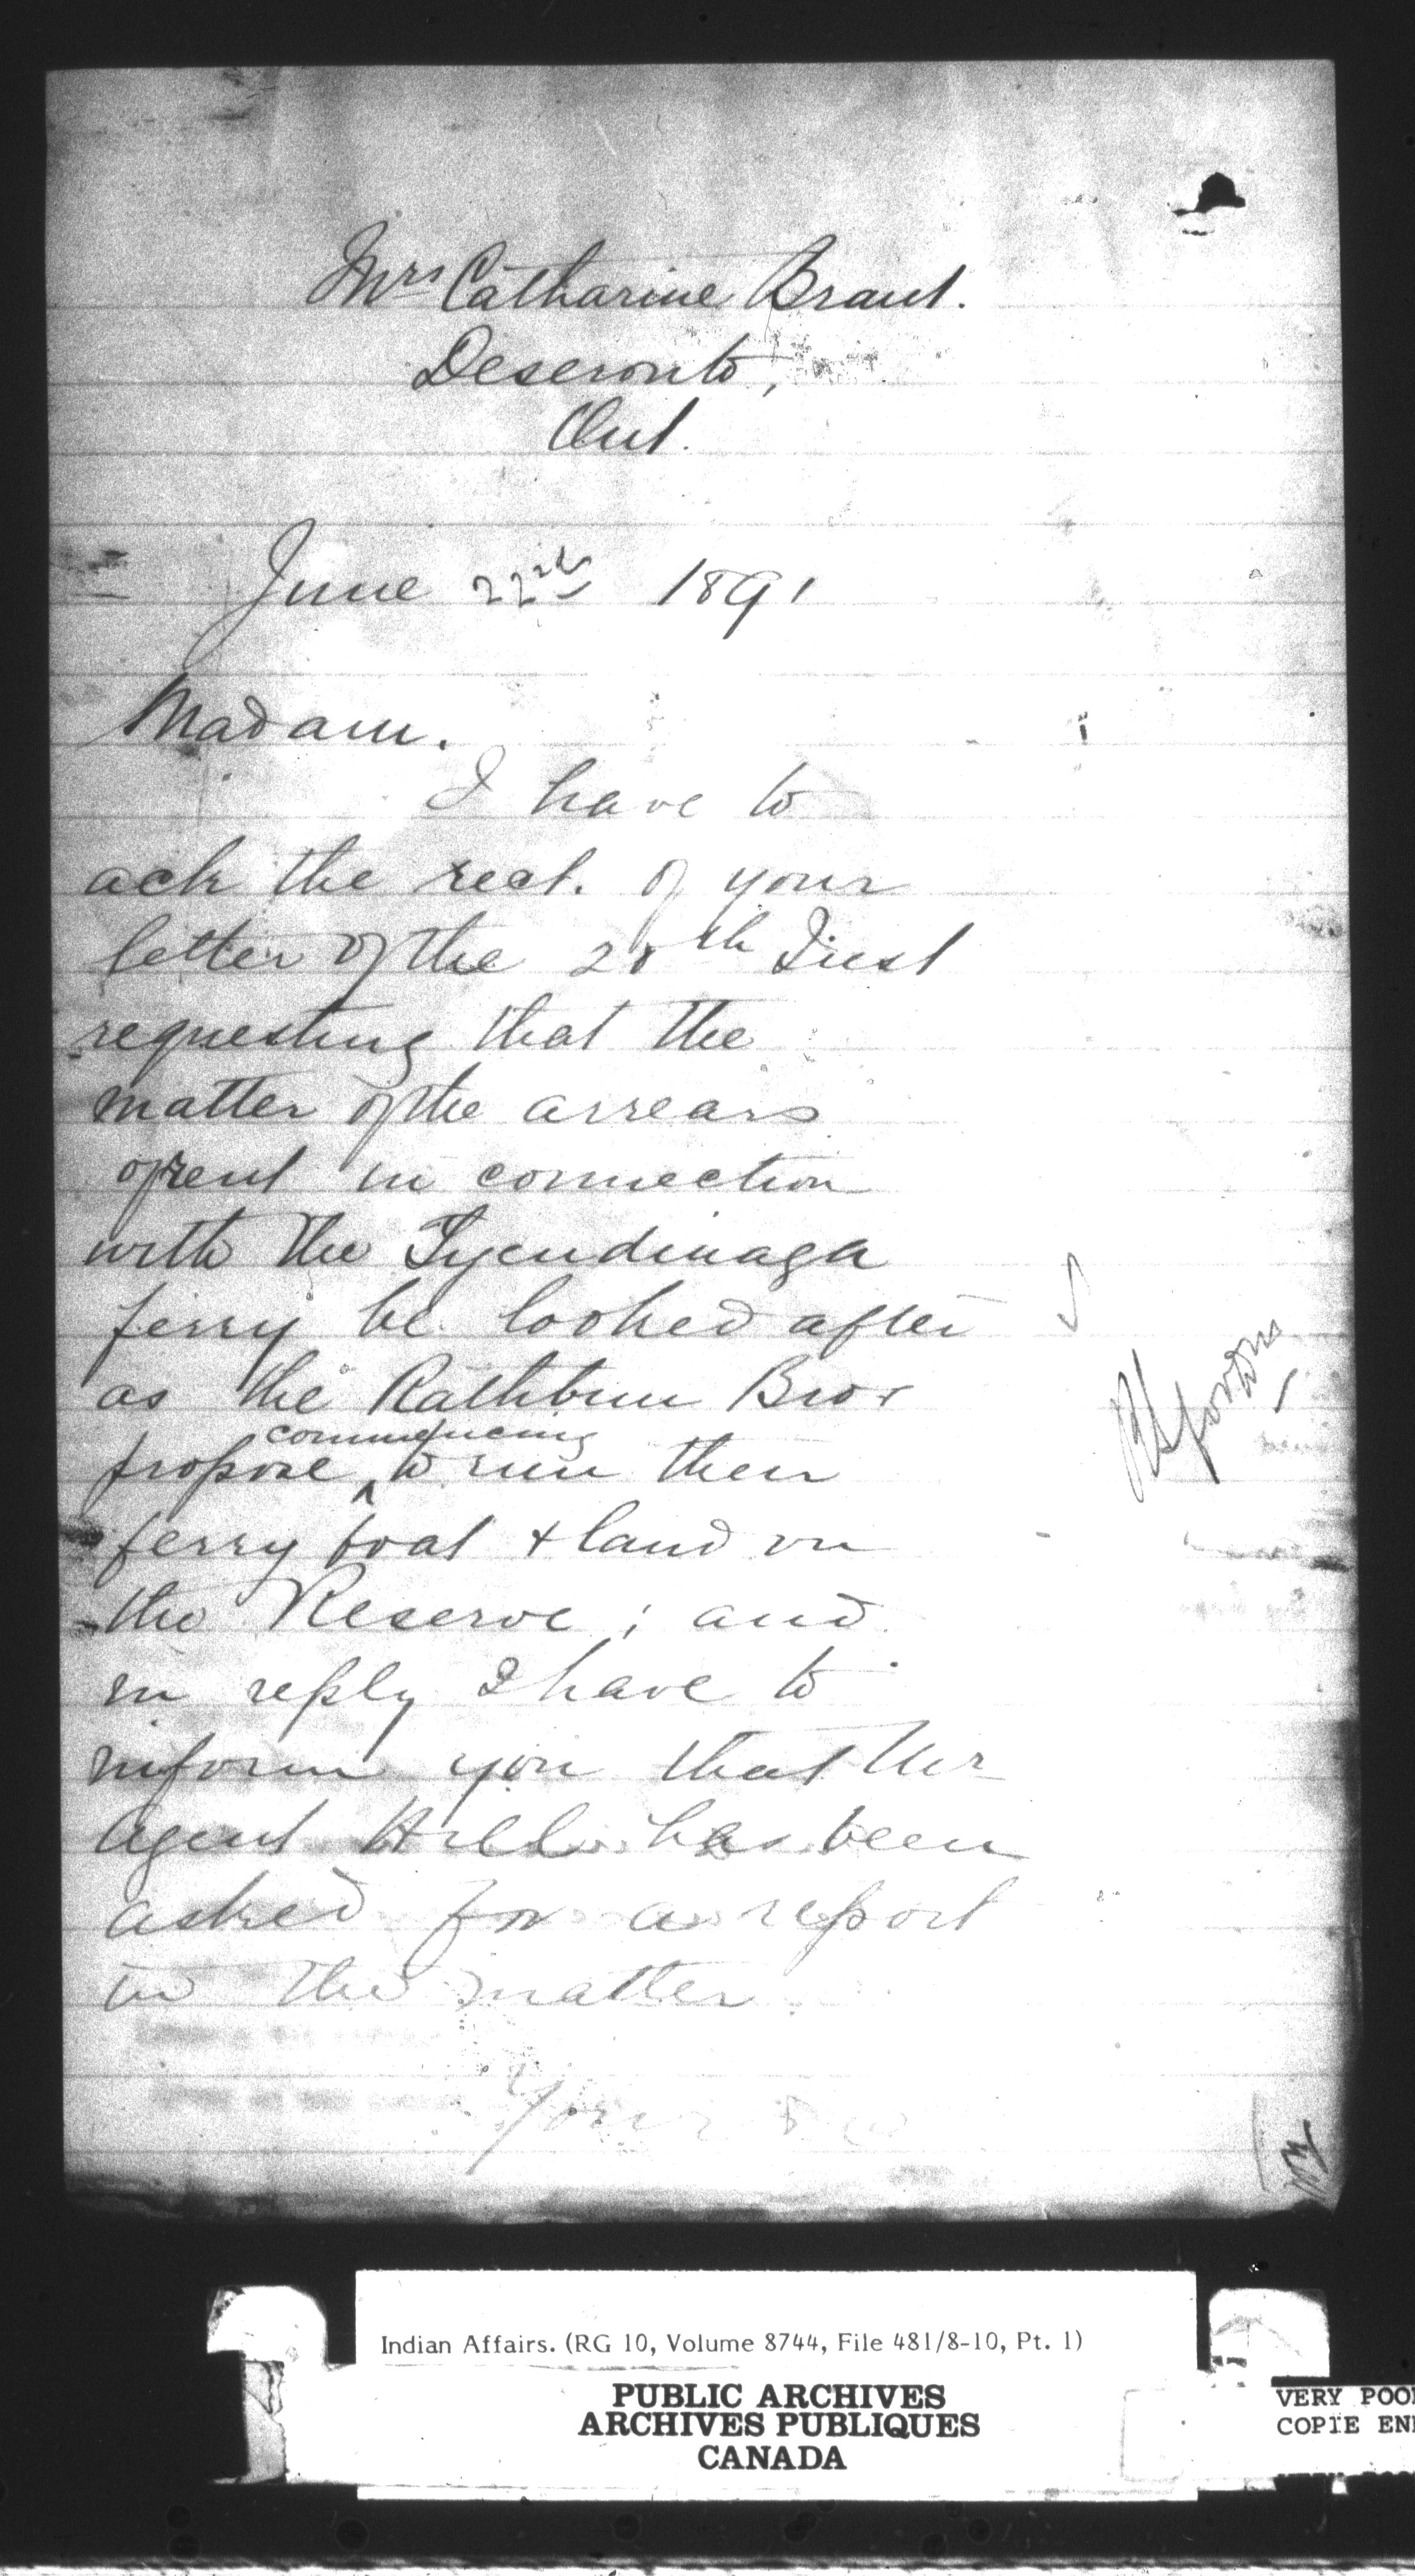 Mrs Catharine Brant.
Deseronto,
Ont.
June 22nd 1891
Madam.
I have to
ack the rect. of your
letter of the 20th Inst
requesting that the
matter of the arrears
of rent in connection
with the Tyendinaga
ferry be looked after
as the Rathbun Bros
commencing
propose ^ to run their
ferry boat + land on
the Reserve; and
in reply I have to
inform you that Mr
Agent Hill has been
asked for a report
in the matter.
Your
Indian Affairs. (RG 10, Volume 8744, File 481/8-10, Pt. 1)
PUBLIC ARCHIVES
ARCHIVES PUBLIQUES
CANADA
VERY POO
COPIE EN